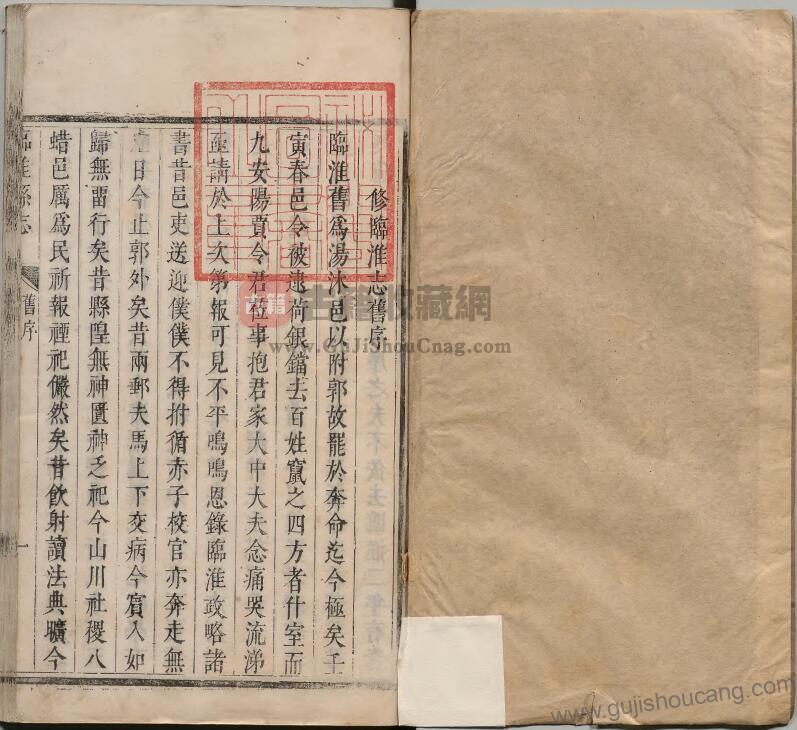 修臨淮志舊序
臨淮舊為湯沐邑以附郭故罷於奔命迄今極矣壬
寅春邑令被逮荷銀鐺去百姓竄之四方者什室而
九安陽賈令君蒞事抱君家大中大夫念痛哭流涕
亟請於上次第報可見不平鳴鳴恩錄臨淮政略諸
書昔邑吏送迎僕僕不得拊循赤子校官亦奔走無
日今止郭外矣昔兩郵夫馬上下交病今賓入如
歸無畱行矣昔縣隍無神匱神乏祀今山川社稷八
蜡邑厲為民祈報禋祀儼然矣昔飲射讀法典曠今
臨淮縣志
舊序
一
古籍收藏網
www.GuJiShouCnag.com
www.gujishoucang.com